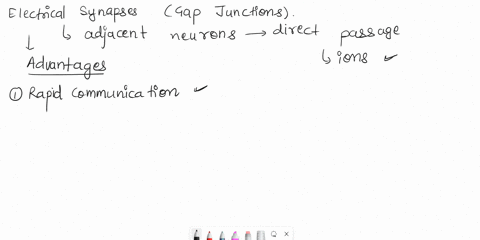 Electrical Synapses (Gap Junctions).
↓ ↳ adjacent neurons → direct passage
Advantages ↳ ions ✓
① Rapid communication ✓